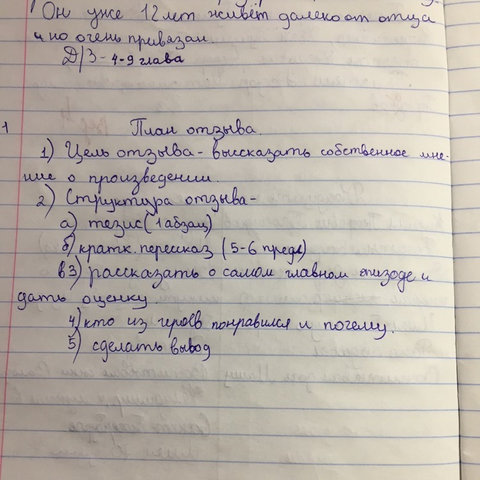 Он уже 12 лет живёт далеко от отца
и но очень привязан.
Д/З - 4-9 глава
1
План отзыва.
1) Цель отзыва - выссказать собственное мне-
ние о произведении.
2) Структура отзыва -
а) тезис (1 абзац)
б) кратк. пересказ (5-6 предл)
в3) рассказать о самом главном эпизоде и
дать оценку.
4) кто из героев понравился и почему.
5) сделать вывод